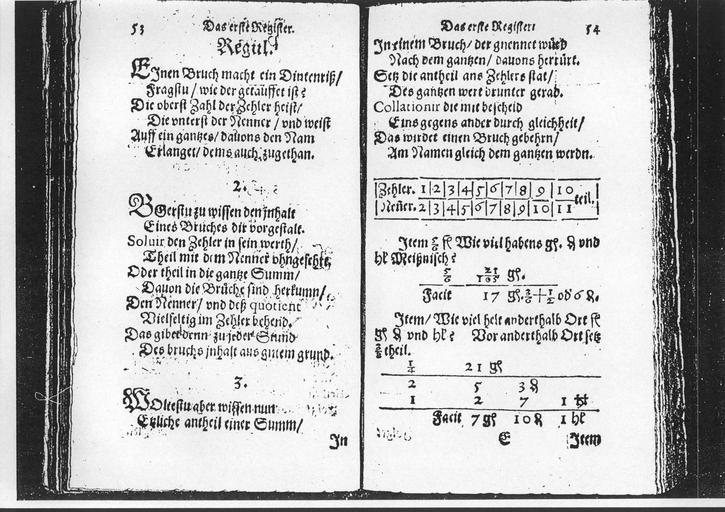 53 Das erste Register.
Regul.
EJnen Bruch macht ein Dintenriß/
Fragstu / wie der getäuffet ist?
Die oberst Zahl der Zehler heist/
Die vnterst der Nenner / vnd weist
Auff ein gantzes / dauons den Nam
Erlanget / dems auch zugethan.
2.
BGerstu zu wissen den jnhalt
Eines Bruches dir vorgestalt.
Soluir den Zehler in sein werth/
Theil mit dem Nenner ohngefehrt,
Oder theil in die gantze Summ/
Dauon die Brüche sind herkumn/
Den Nenner / vnd deß quotient
Vielfeltig im Zehler behend.
Das gibet denn zu jeder Stund
Des bruchs jnhalt aus gutem grund.
3.
WOltestu aber wissen nun
Etzliche antheil einer Summ/
Jn
Das erste Register 54
Jn einem Bruch / der gnennet würd
Nach dem gantzen / dauons herrürt.
Setz die antheil ans Zehlers stat/
Des gantzen wert drunter gerad.
Collationir die mit bescheid
Eins gegens ander durch gleichheit/
Das wirdet einen Bruch gebehrn/
Am Namen gleich dem gantzen werdn.
Zehler. 1|2|3|4|5|6|7|8|9|10
Neñer. 2|3|4|5|6|7|8|9|10|11 teil.
Jtem Wie viel habens gl. vnd
hl Meißnisch?
5/6 21/105 gl.
Facit 17 gl.
Jtem / Wie viel helt anderthalb Ort fl
gl vnd hl? Vor anderthalb Ort setz
theil.
1/2 21 gl
2 5 3
1 2 7 1
Facit 7 gl 10 1 hl
E Jtem